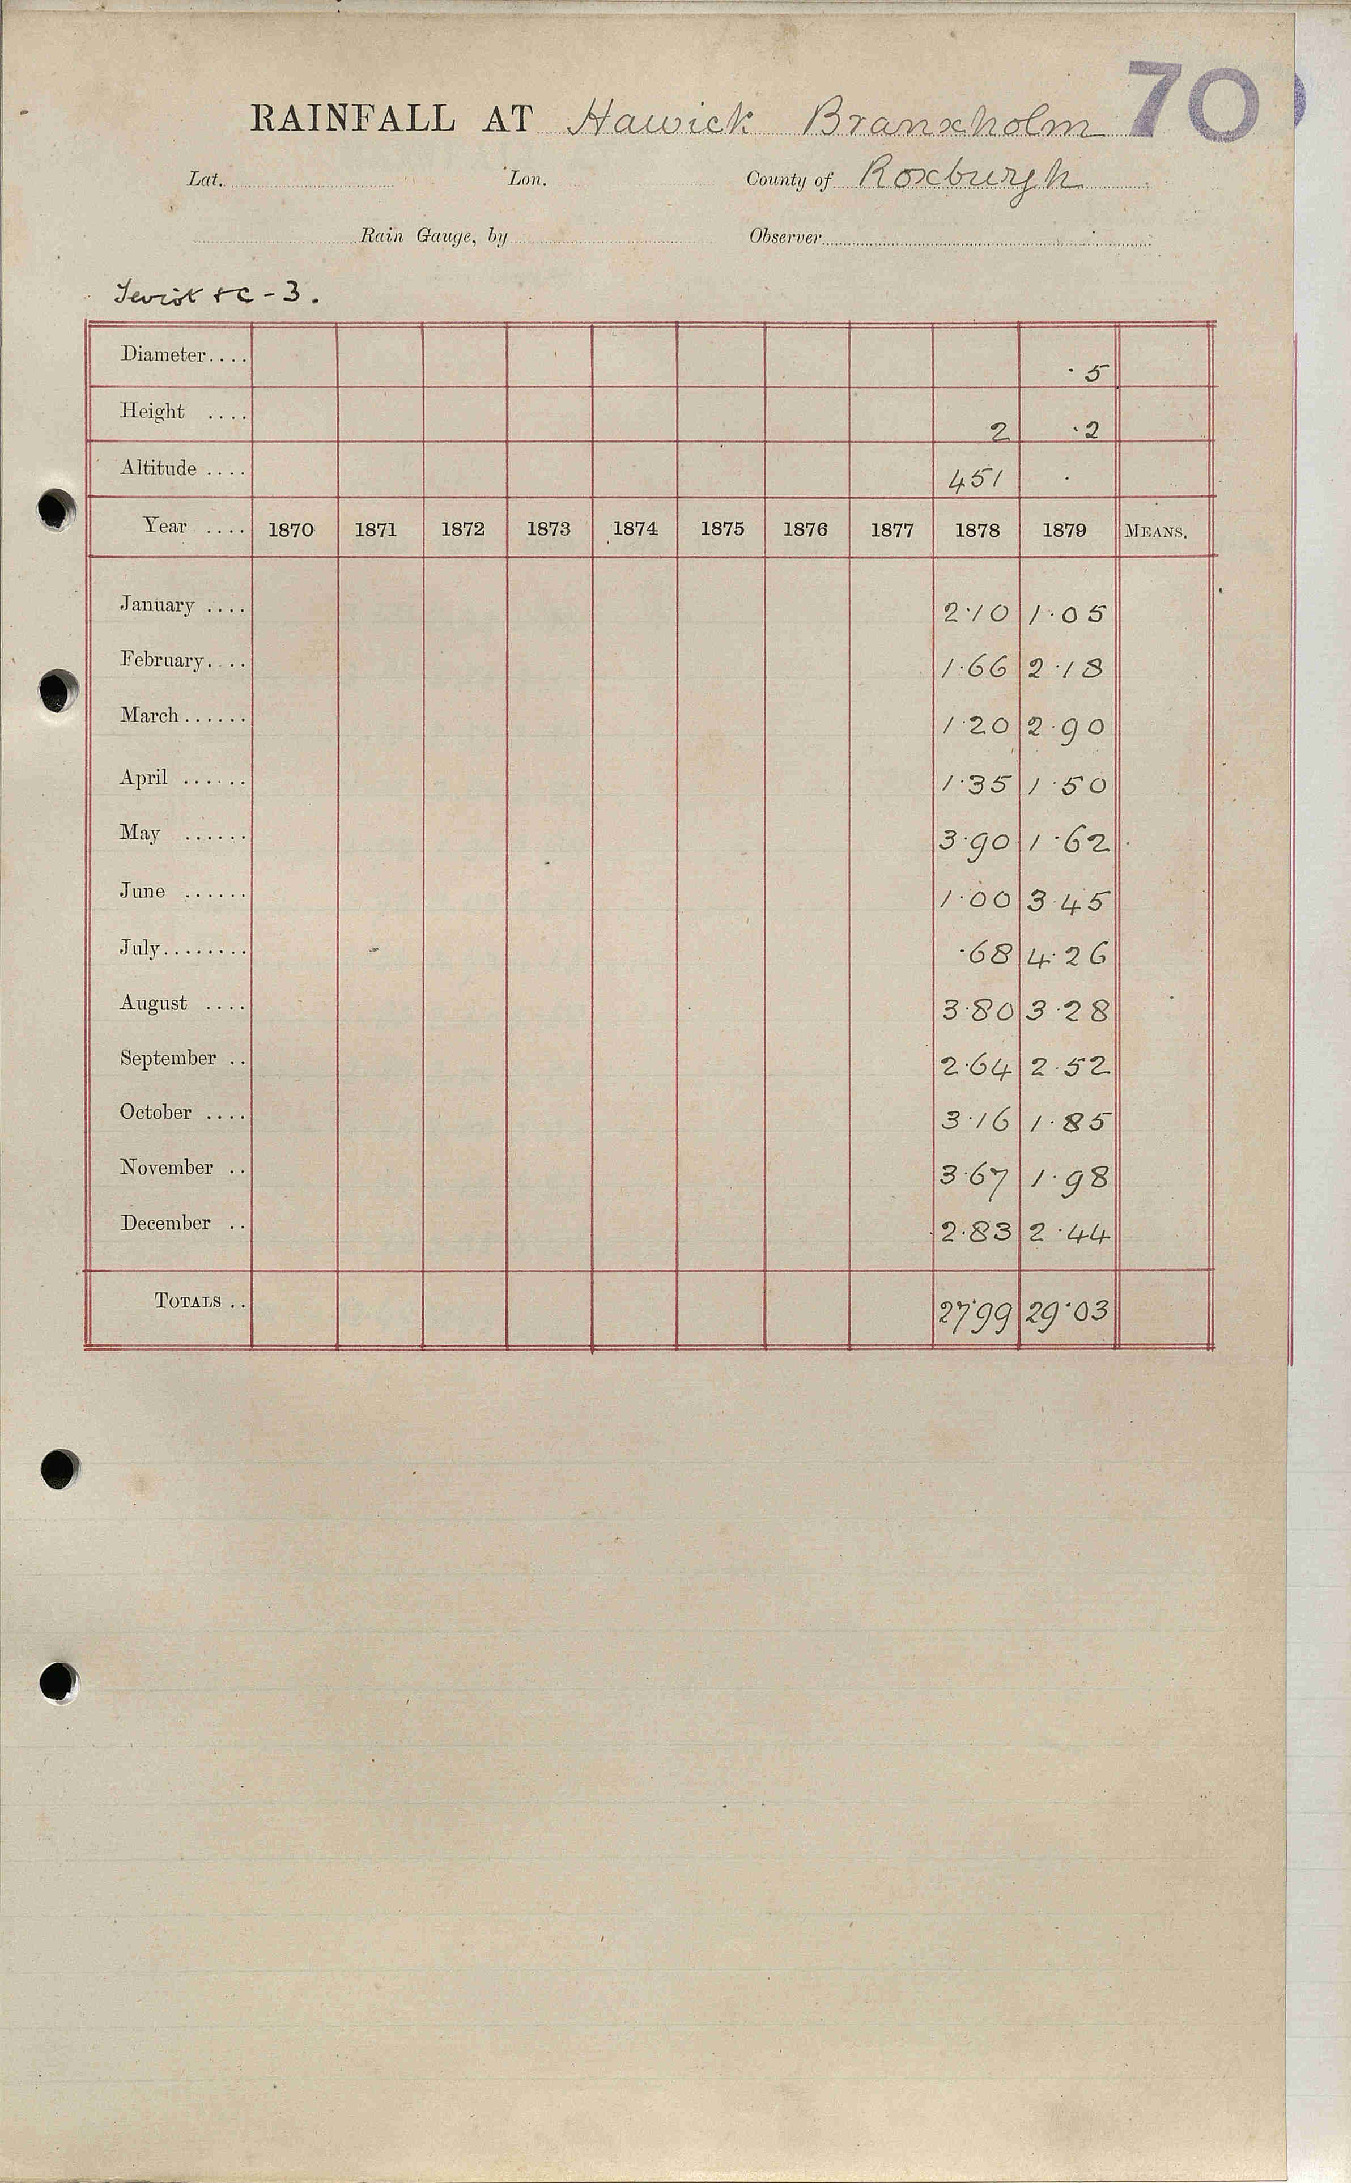 70
RAINFALL AT Hawick Branxholm
Lat. Lon. County of Roxburgh
Rain Gauge, by Observer
Teviot &c - 3.
Diameter.... ·5
Height .... 2 ·2
Altitude .... 451 ·
Year .... 1870 1871 1872 1873 1874 1875 1876 1877 1878 1879 MEANS.
January .... 2·10 1·05
February.... 1·66 2·18
March...... 1·20 2·90
April ...... 1·35 1·50
May ...... 3·90 1·62
June ...... 1·00 3·45
July........ ·68 4·26
August .... 3·80 3·28
September .. 2·64 2·52
October .... 3·16 1·85
November .. 3·67 1·98
December .. 2·83 2·44
TOTALS .. 27·99 29·03